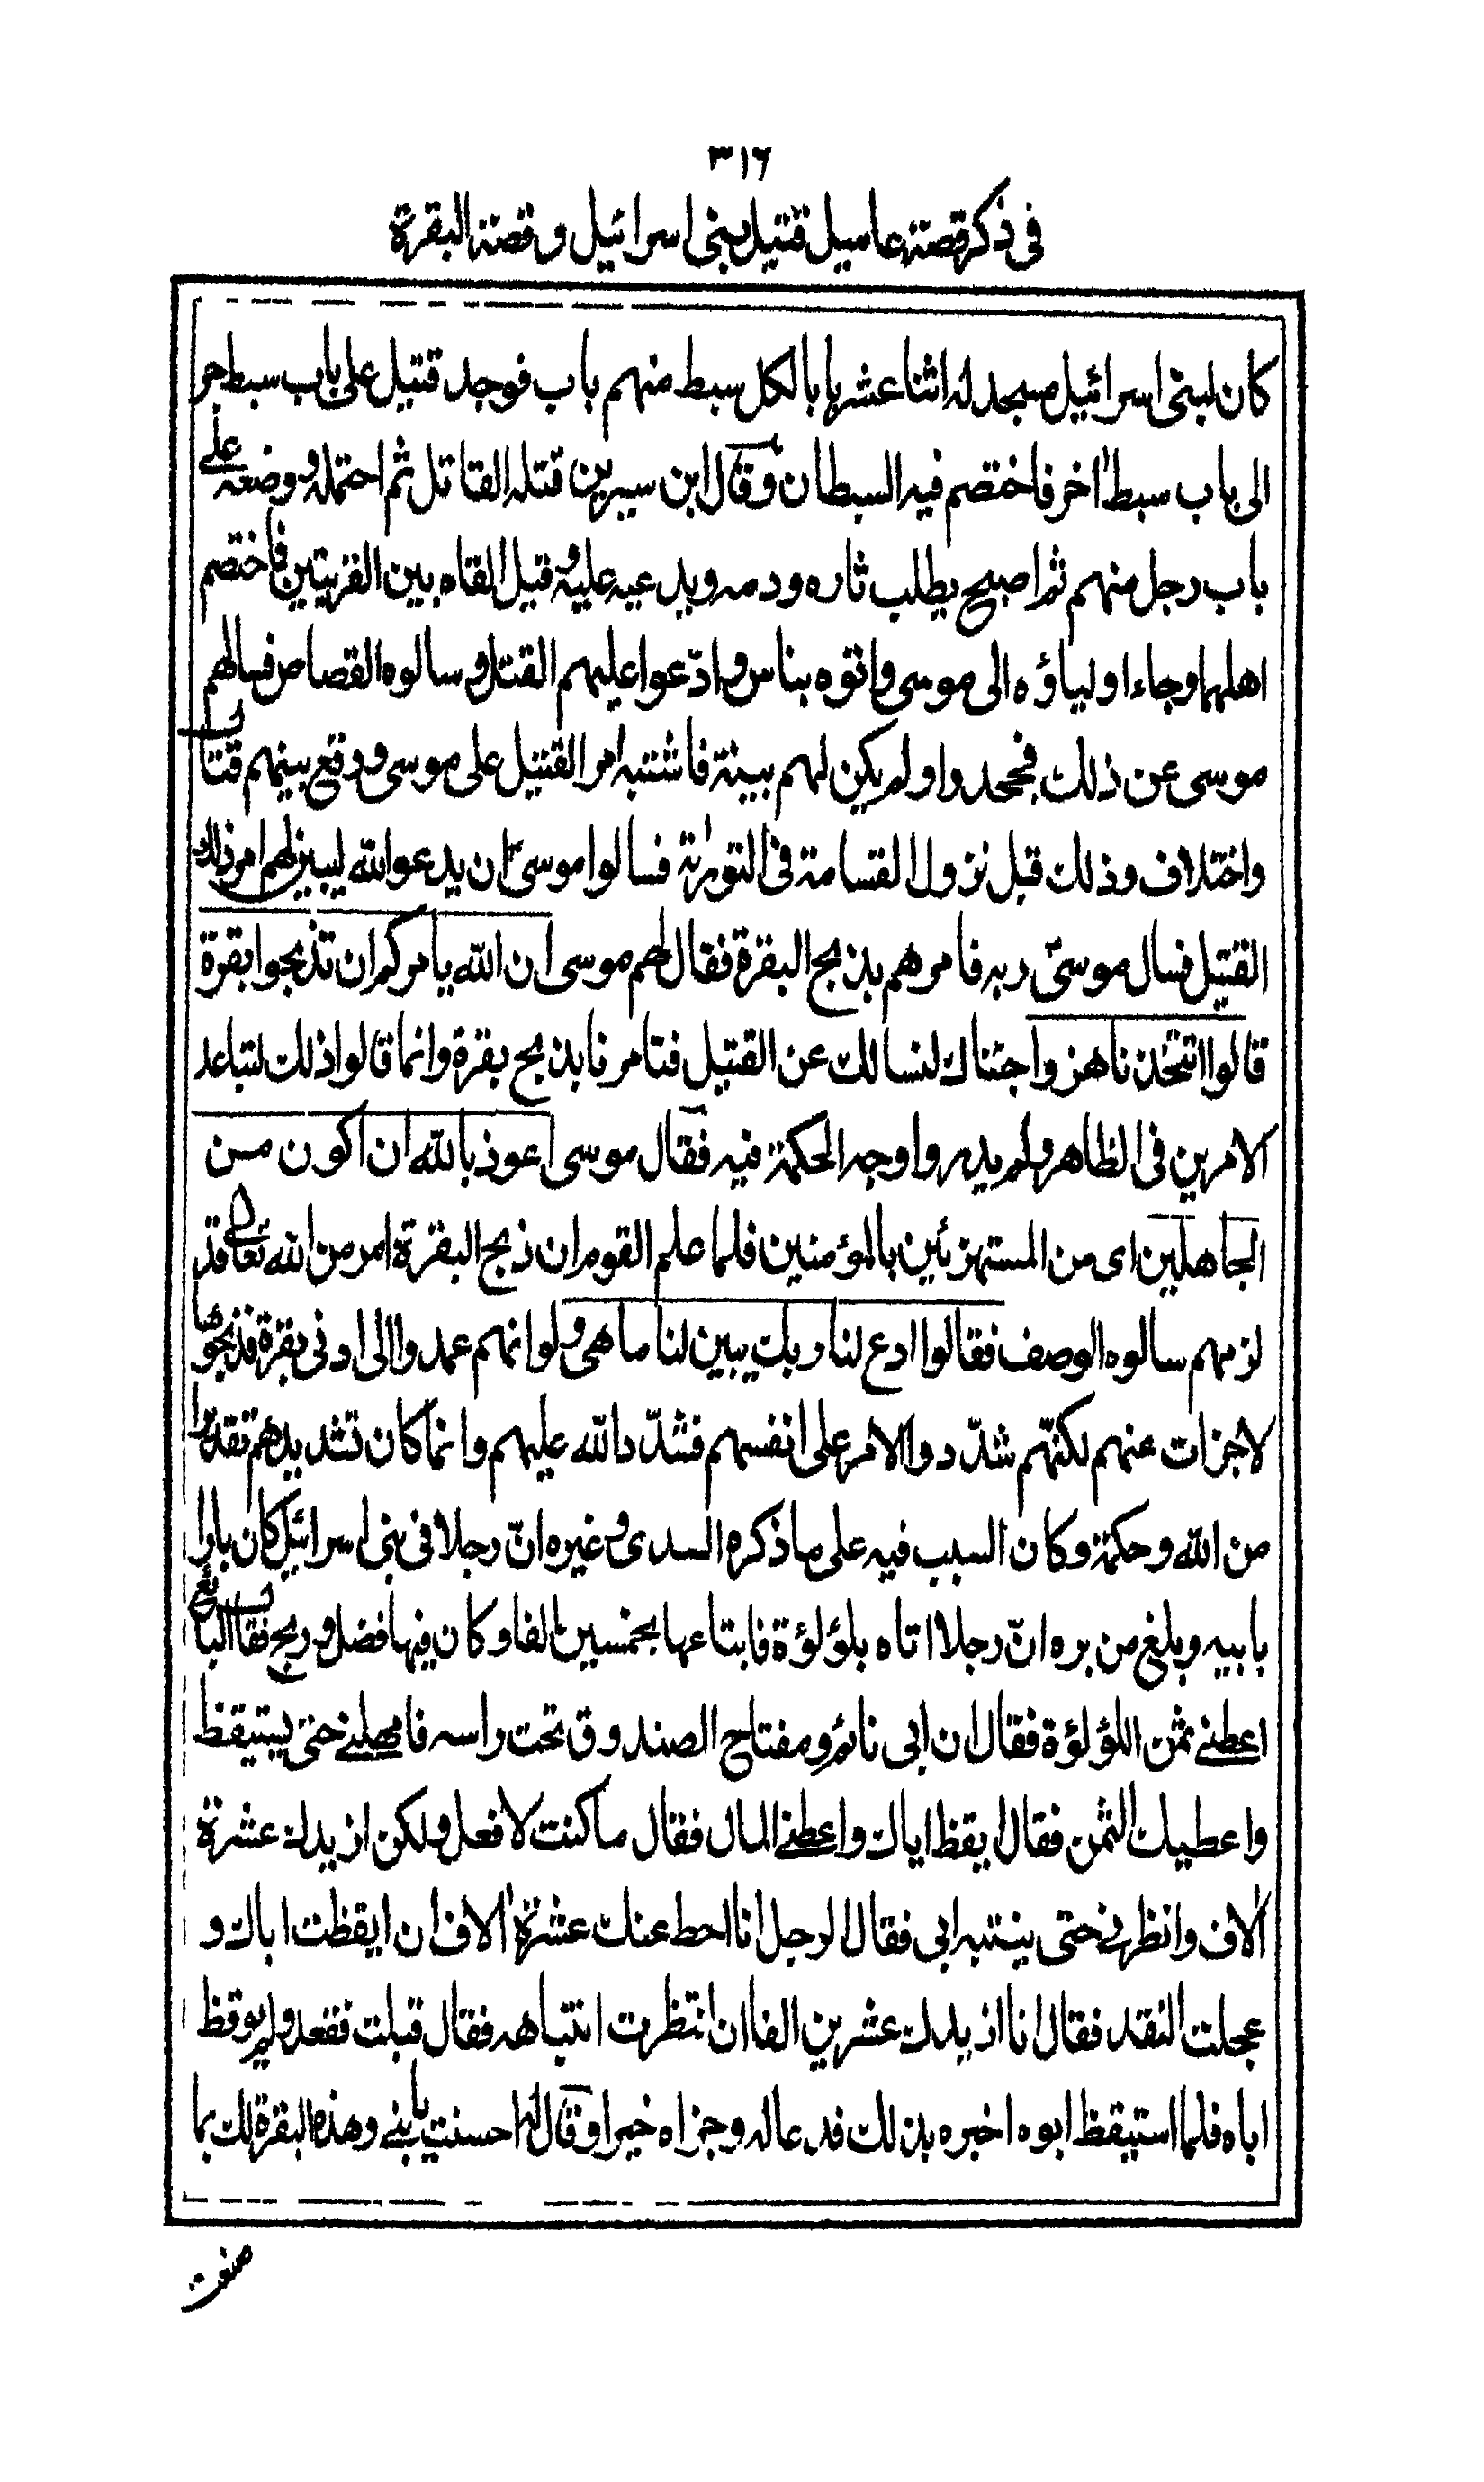 ٣١٦
في ذكر قصة عاميل قتيل بني اسرائيل وقصة البقرة
كان لبني اسرائيل مسجد له اثنا عشر بابا لكل سبط منهم باب فوجد قتيل على باب سبط جر
الى باب سبط اخر فاختصم فيه السبطان وقال ابن سيرين قتله القاتل ثم احتمله ووضعه على
باب رجل منهم ثم اصبح يطلب ثاره ودمه ويدعيه عليه وقيل القاه بين القريتين فاختصم
اهلهما وجاء اولياؤه الى موسى واتوه بناس وادّعوا عليهم القتل وسالوه القصاص فسالهم
موسى عن ذلك فجحدوا ولم يكن لهم بينة فاشتبه امر القتيل على موسى ووقع بينهم قتال
واختلاف وذلك قبل نزول القسامة في التورٰية فسالوا موسىٰ ان يدعو الله ليبين لهم امر ذلك
القتيل فسال موسىٰ ربه فامرهم بذبح البقرة فقال لهم موسى ان الله يامركم ان تذبحوا بقرة
قالوا اتتخذنا هزوا جئناك لنسالك عن القتيل فتامرنا بذبح بقرة وانما قالوا ذلك لتباعد
الامرين في الظاهر ولم يدروا وجه الحكمة فيه فقال موسى اعوذ بالله ان اكون من
الجاهلين اى من المستهزئين بالمؤمنين فلما علم القوم ان ذبح البقرة امر من الله تعالى قد
لزمهم سالوه الوصف فقالوا ادع لنا ربك يبين لنا ما هي ولو انهم عمدوا الى ادنى بقرة فذبحوها
لاجزات عنهم لكنّهم شدّدوا الامر على انفسهم فشدّد الله عليهم وانما كان تشديدهم تقديرا
من الله وحكمة وكان السبب فيه على ما ذكره السدى وغيره انّ رجلا في بني اسرائيل كان بارا
بابيه وبلغ من بره انّ رجلا اتاه بلؤلؤة فابتاعها بخمسين الفا وكان فيها فضل وربح فقال البائع
اعطني ثمن اللؤلؤة فقال ان ابى نائم ومفتاح الصندوق تحت راسه فامهلني حتى يستيقظ
واعطيك الثمن فقال ايقظ اباك واعطني المال فقال ما كنت لافعل ولكن ازيدك عشرة
الاف وانظرني حتى ينتبه ابى فقال الرجل انا احط عنك عشرة الاف ان ايقظت اباك و
عجلت النقد فقال انا ازيدك عشرين الفا ان انتظرت انتباهه فقال قبلت فقعد ولم يوقظ
اباه فلما استيقظ ابوه اخبره بذلك فدعا له وجزاه خيرا وقال له احسنت يا بني وهذه البقرة لك بما
صنعت